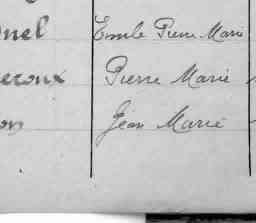 nel Emile Pierre Marie
eroux Pierre Marie
on Jean Marie